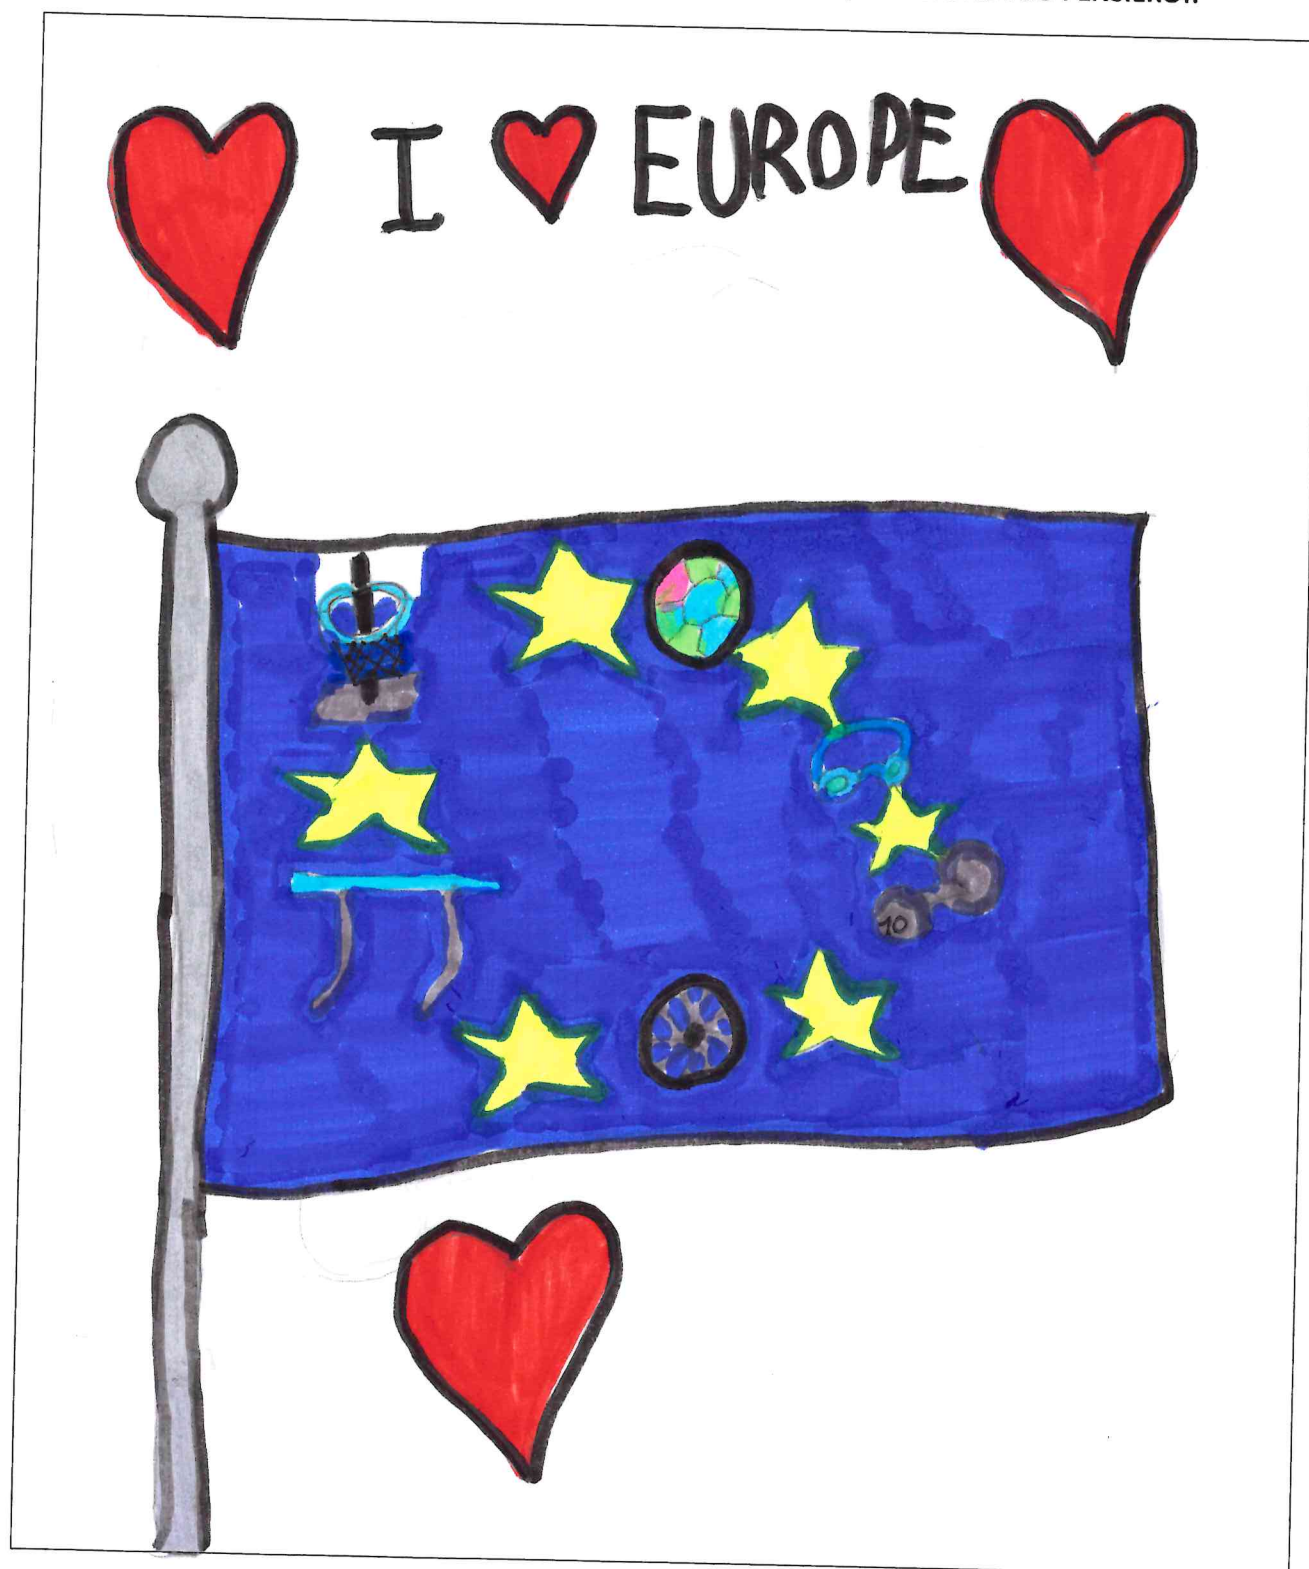 I ♥ EUROPE
10